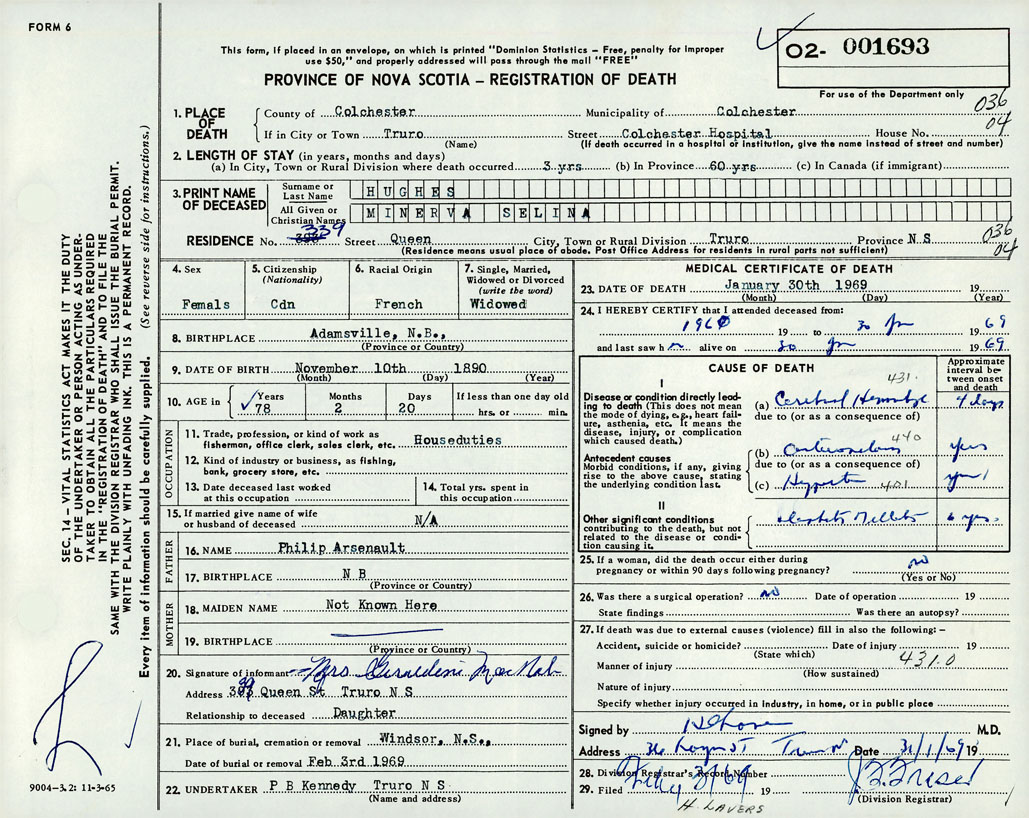 FORM 6
This form, if placed in an envelope, on which is printed "Dominion Statistics – Free, penalty for improper
use $50," and properly addressed will pass through the mail "FREE"
02- 001693
PROVINCE OF NOVA SCOTIA – REGISTRATION OF DEATH
For use of the Department only
036
04
1. PLACE OF DEATH
County of Colchester Municipality of Colchester
If in City or Town Truro Street Colchester Hospital House No.
(Name) (If death occurred in a hospital or institution, give the name instead of street and number)
2. LENGTH OF STAY (in years, months and days)
(a) In City, Town or Rural Division where death occurred 3 yrs (b) In Province 60 yrs (c) In Canada (if immigrant)
3. PRINT NAME OF DECEASED
Surname or Last Name HUGHES
All Given or Christian Names MINERVA SELINA
RESIDENCE No. 339 Street Queen City, Town or Rural Division Truro Province N S
(Residence means usual place of abode. Post Office Address for residents in rural parts not sufficient)
036
04
4. Sex
Femals
5. Citizenship
(Nationality)
Cdn
6. Racial Origin
French
7. Single, Married,
Widowed or Divorced
(write the word)
Widowed
8. BIRTHPLACE Adamsville, N.B.,
(Province or Country)
9. DATE OF BIRTH November 10th 1890
(Month) (Day) (Year)
10. AGE in
Years 78
Months 2
Days 20
If less than one day old
hrs. or min.
OCCUPATION
11. Trade, profession, or kind of work as
fisherman, office clerk, sales clerk, etc. Houseduties
12. Kind of industry or business, as fishing,
bank, grocery store, etc.
13. Date deceased last worked
at this occupation
14. Total yrs. spent in
this occupation
15. If married give name of wife
or husband of deceased N/A
FATHER
16. NAME Philip Arsenault
17. BIRTHPLACE N B
(Province or Country)
MOTHER
18. MAIDEN NAME Not Known Here
19. BIRTHPLACE
(Province or Country)
20. Signature of informant Mrs Geraldine MacNab
Address Queen St Truro N S
Relationship to deceased Daughter
21. Place of burial, cremation or removal Windsor, N.S.,
Date of burial or removal Feb 3rd 1969
22. UNDERTAKER P B Kennedy Truro N S
(Name and address)
MEDICAL CERTIFICATE OF DEATH
23. DATE OF DEATH January 30th 1969 19
(Month) (Day) (Year)
24. I HEREBY CERTIFY that I attended deceased from:
19 to 30 Jan 1969
and last saw h alive on 30 Jan 1969
CAUSE OF DEATH
Approximate
interval be-
tween onset
and death
I
Disease or condition directly lead-
ing to death (This does not mean
the mode of dying, e.g., heart fail-
ure, asthenia, etc. It means the
disease, injury, or complication
which caused death.)
431.
(a) Cerebral Hemorrhage 4 days
due to (or as a consequence of)
Antecedent causes
Morbid conditions, if any, giving
rise to the above cause, stating
the underlying condition last.
440
(b) yrs
due to (or as a consequence of)
(c) 401
II
Other significant conditions
contributing to the death, but not
related to the disease or condi-
tion causing it.
6 yrs.
25. If a woman, did the death occur either during
pregnancy or within 90 days following pregnancy? no
(Yes or No)
26. Was there a surgical operation? no Date of operation 19
State findings Was there an autopsy?
27. If death was due to external causes (violence) fill in also the following: –
Accident, suicide or homicide? Date of injury 19
(State which)
431.0
Manner of injury
(How sustained)
Nature of injury
Specify whether injury occurred in industry, in home, or in public place
Signed by M.D.
Address Truro Date 31/1/69 19
28. Division Registrar's Record Number
29. Filed 19
(Division Registrar)
H. LAVERS
SEC. 14 – VITAL STATISTICS ACT MAKES IT THE DUTY
OF THE UNDERTAKER OR PERSON ACTING AS UNDER-
TAKER TO OBTAIN ALL THE PARTICULARS REQUIRED
IN THE "REGISTRATION OF DEATH" AND TO FILE THE
SAME WITH THE DIVISION REGISTRAR WHO SHALL ISSUE THE BURIAL PERMIT.
WRITE PLAINLY WITH UNFADING INK. THIS IS A PERMANENT RECORD.
Every item of information should be carefully supplied. (See reverse side for instructions.)
9004-3.2: 11-3-65